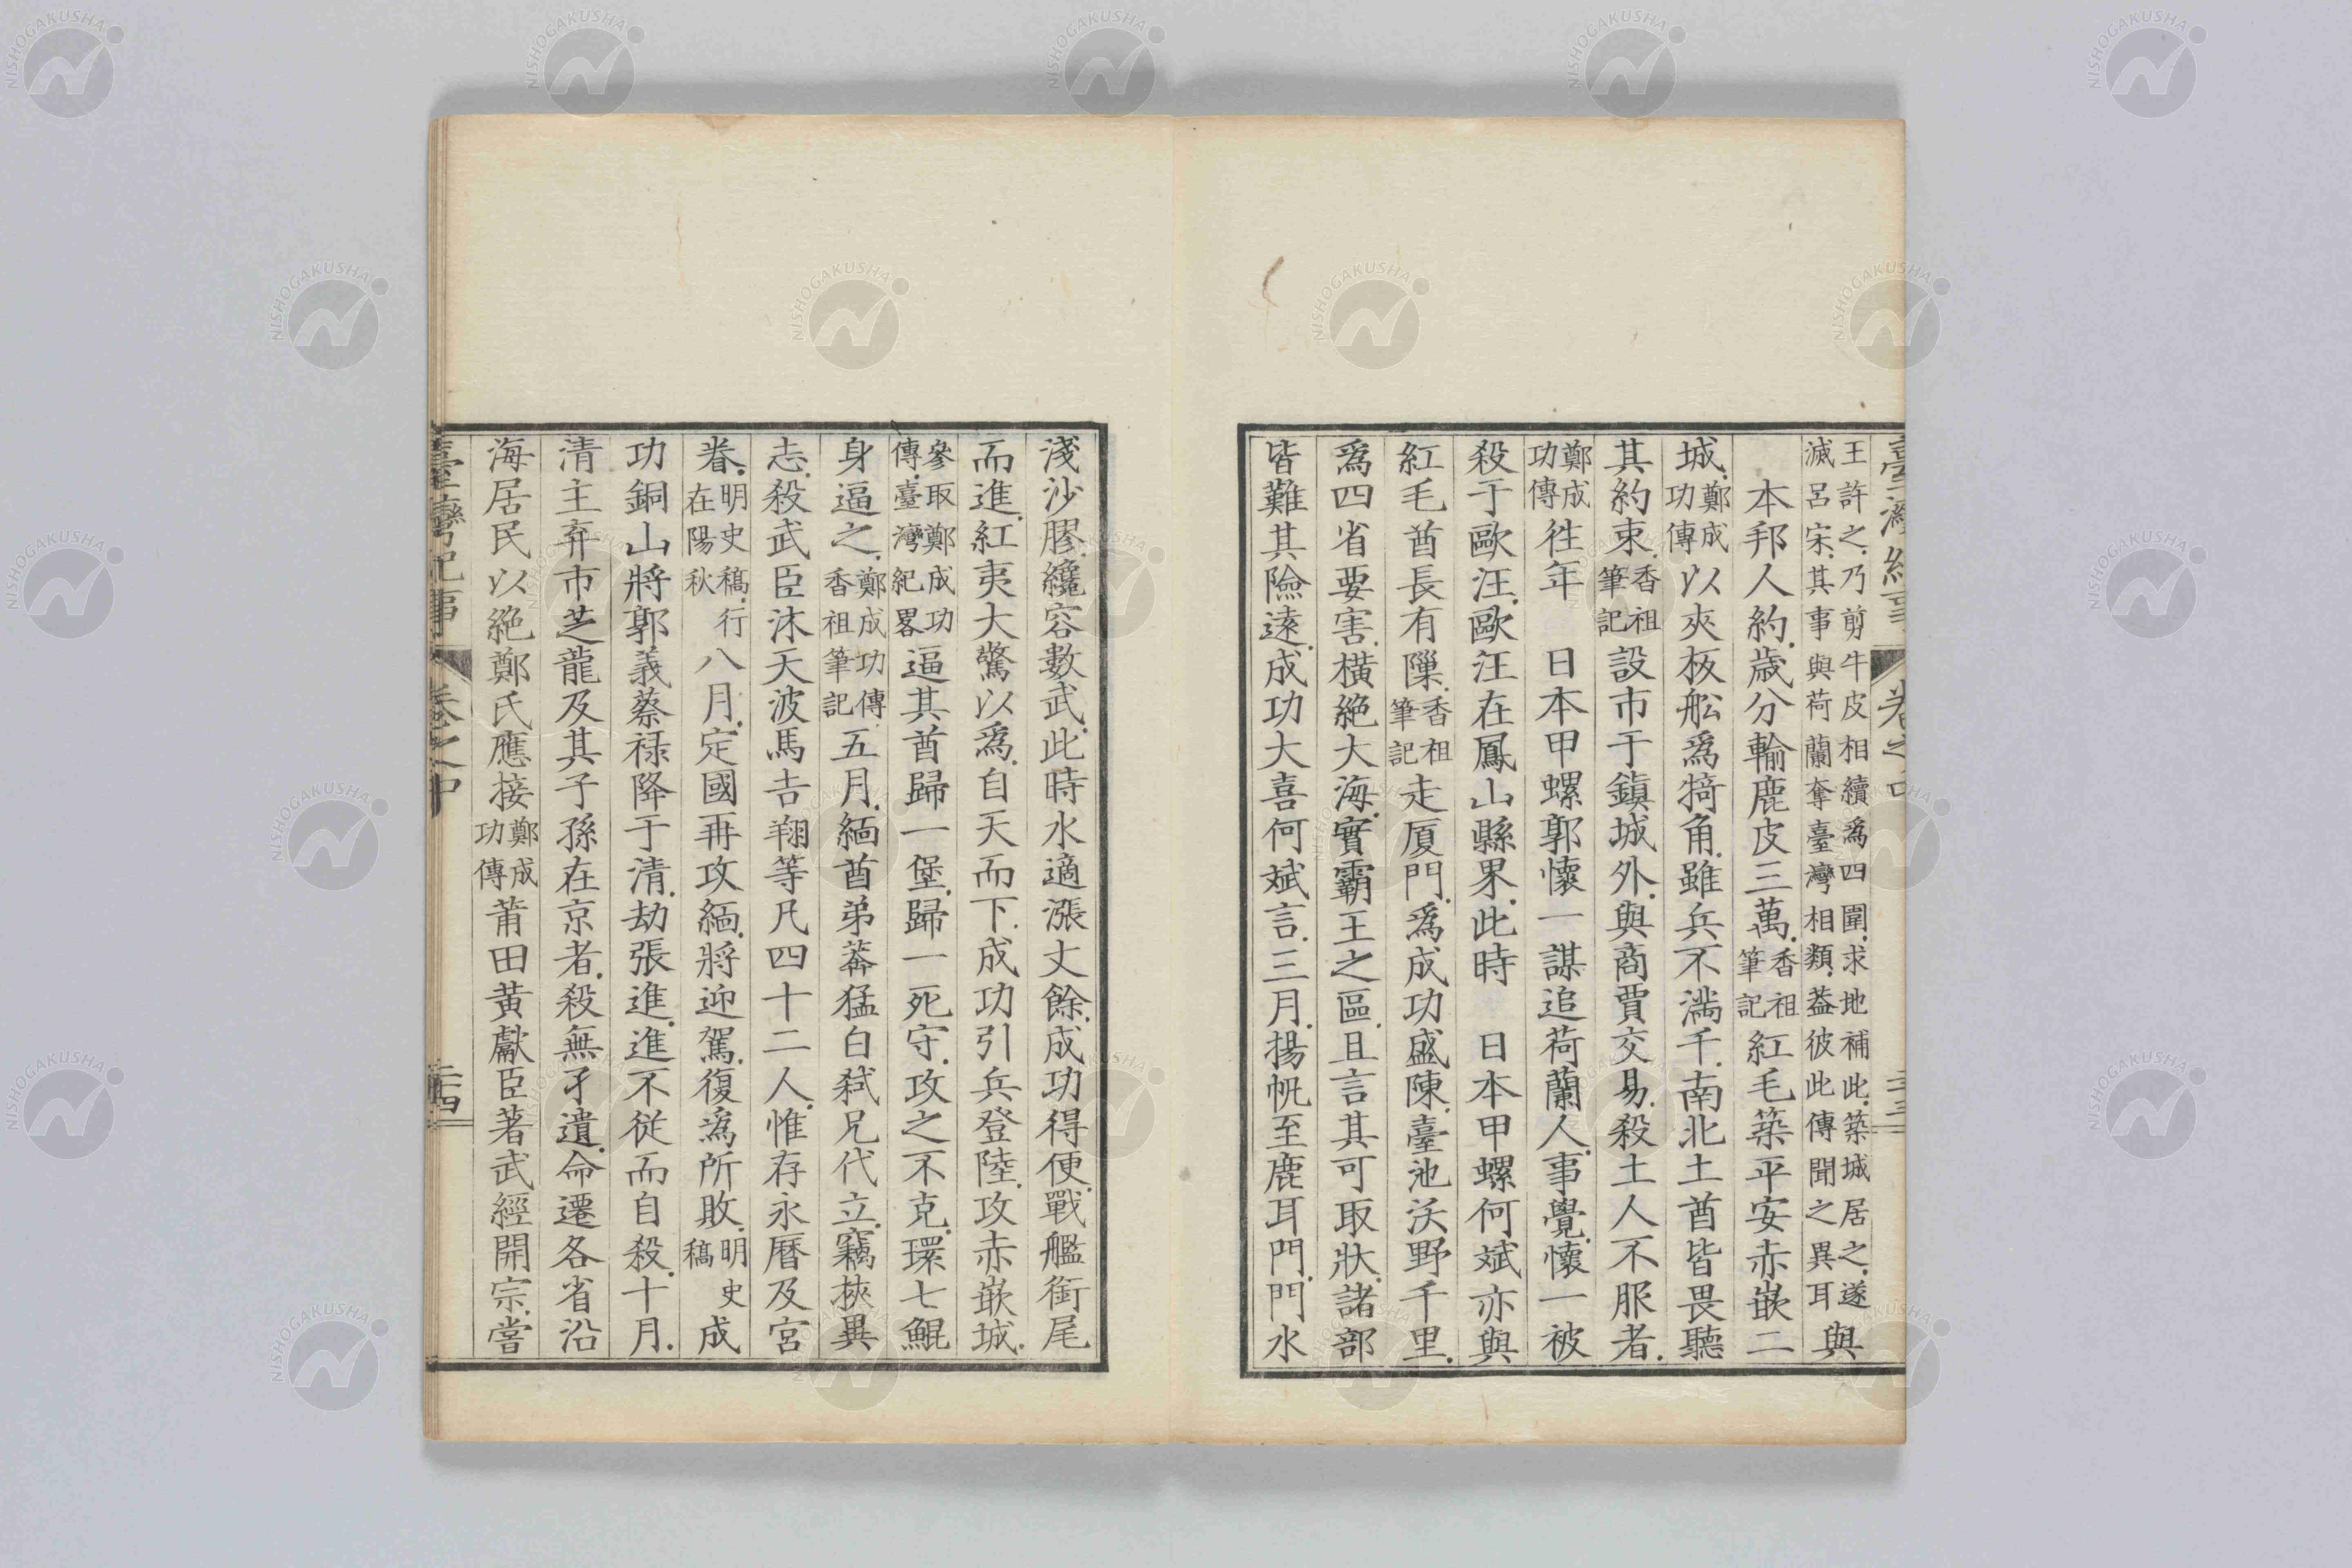 臺灣紀事
卷之中
二十三
王許之乃剪牛皮相續爲四圍求地補此築城居之遂
滅呂宋其事與荷蘭奪臺灣相類葢彼此傳聞之異耳
與
本邦人約歲分輸鹿皮三萬香祖筆記紅毛築平安赤嵌二
城鄭成功傳以夾板舩爲犄角雖兵不滿千南北土酋皆畏聽
其約束香祖筆記設市于鎮城外與商賈交易殺土人不服者
鄭成功傳徃年 日本甲螺郭懷一謀追荷蘭人事覺懷一被
殺于歐汪歐汪在鳳山縣界此時 日本甲螺何斌亦與
紅毛酋長有隟香祖筆記走厦門爲成功盛陳臺池沃野千里
爲四省要害橫絶大海實霸王之區且言其可取狀諸部
皆難其險遠成功大喜何斌言三月揚帆至鹿耳門門水
淺沙膠纔容數武此時水適漲丈餘成功得便戰艦銜尾
而進紅夷大驚以爲自天而下成功引兵登陸攻赤嵌城
參取鄭成功傳臺灣紀畧逼其酋歸一堡歸一死守攻之不克環七鯤
身逼之鄭成功傳香祖筆記五月緬酋弟莾猛白弒兄代立竊挾異
志殺武臣沐天波馬吉翔等凡四十二人惟存永曆及宮
眷明史稿行在陽秋八月定國再攻緬將迎駕復爲所敗明史稿成
功銅山將郭義蔡禄降于清劫張進進不從而自殺十月
清主弃市芝龍及其子孫在京者殺無孑遺命遷各省沿
海居民以絶鄭氏應接鄭成功傳莆田黃獻臣著武經開宗嘗
臺灣紀事
卷之中
二十四
NISHOGAKUSHA